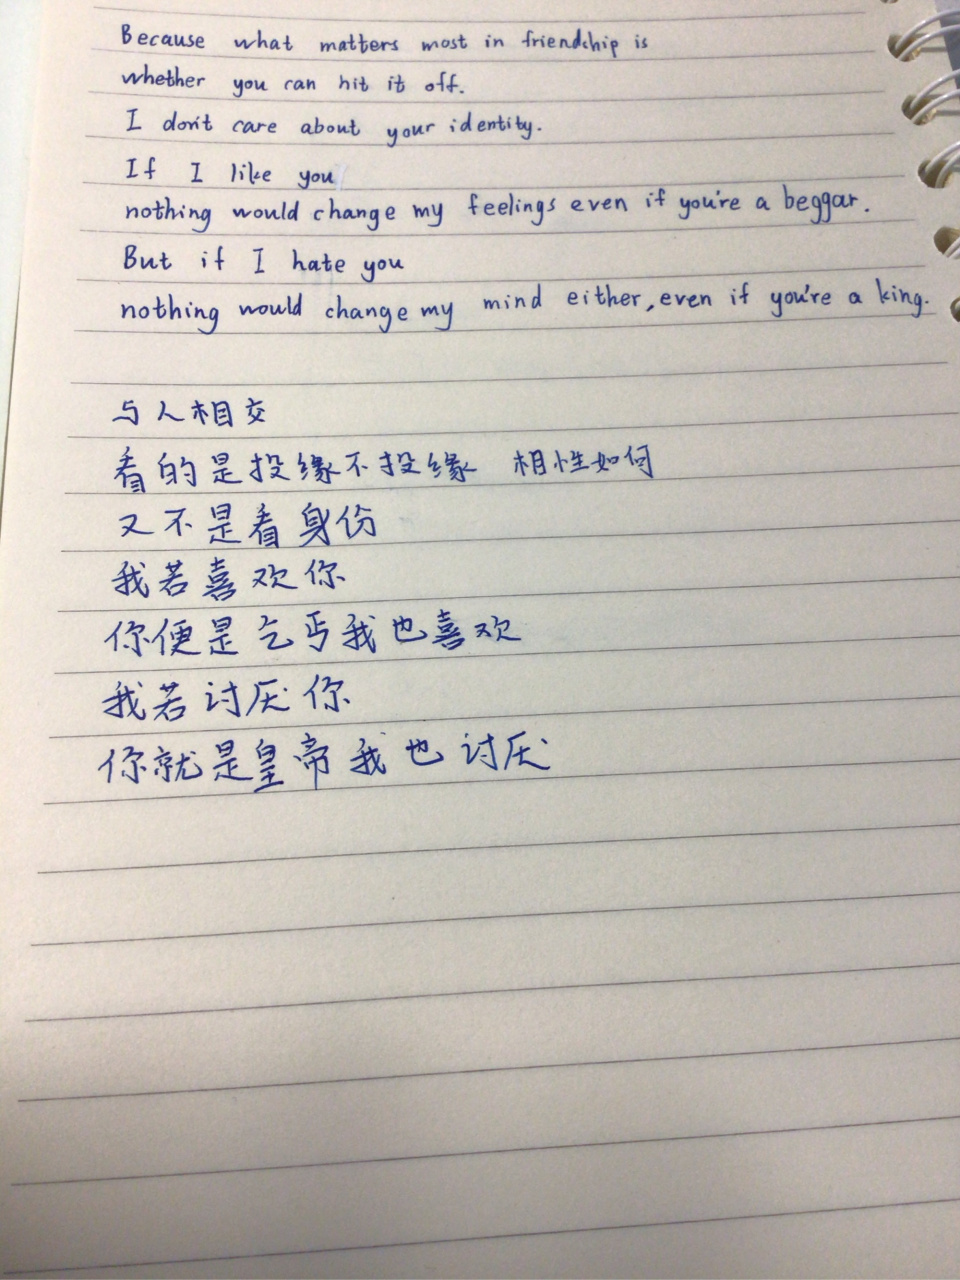 Because what matters most in friendship is
whether you can hit it off.
I don't care about your identity.
If I like you
nothing would change my feelings even if you're a beggar.
But if I hate you
nothing would change my mind either, even if you're a king.
与人相交
看的是投缘不投缘 相性如何
又不是看身份
我若喜欢你
你便是乞丐我也喜欢
我若讨厌你
你就是皇帝我也讨厌